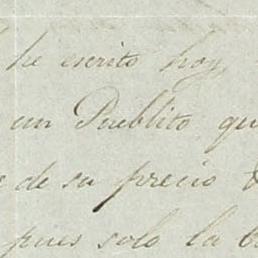 he escrito hoy,
un Pueblito qu
de su precio
pues solo la